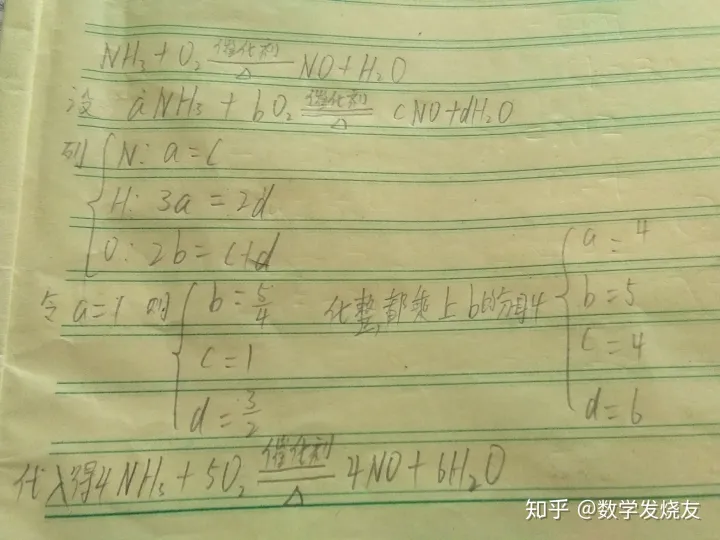 NH₃ + O₂ 催化剂 △ NO + H₂O
设 aNH₃ + bO₂ 催化剂 △ cNO + dH₂O
列 { N: a = c
H: 3a = 2d
O: 2b = c + d
令 a = 1 则 { b = 5/4
c = 1
d = 3/2
化整,都乘上b的分母4
{ a = 4
b = 5
c = 4
d = 6
代入得 4NH₃ + 5O₂ 催化剂 △ 4NO + 6H₂O
知乎 @数学发烧友